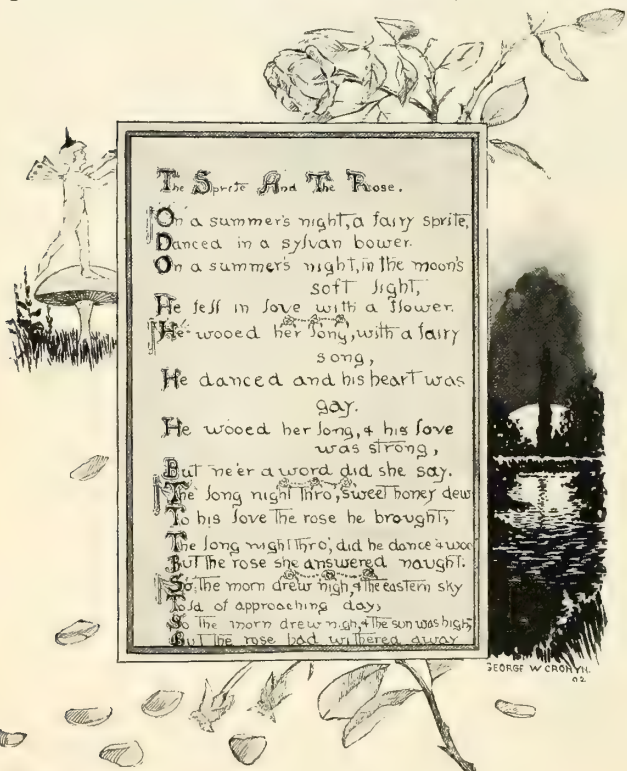 The Sprite And The Rose.
On a summer's night, a fairy sprite,
Danced in a sylvan bower.
On a summer's night, in the moon's
soft light,
He fell in love with a flower.
He wooed her long, with a fairy
song,
He danced and his heart was
gay.
He wooed her long, & his love
was strong,
But ne'er a word did she say.
The long night thro', sweet honey dew
To his love the rose he brought,
The long night thro', did he dance & woo
But the rose she answered naught.
So, the morn drew nigh, & the eastern sky
Told of approaching day,
So the morn drew nigh, & the sun was high,
But the rose had withered away
GEORGE W CRONYN.
02